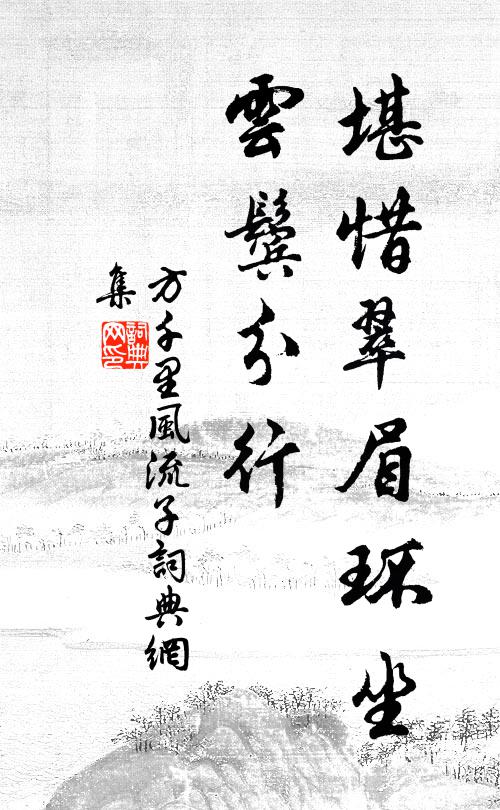 堪惜翠眉环坐
雲鬢分行
方千里風流子詞典網
集
詞典
网印